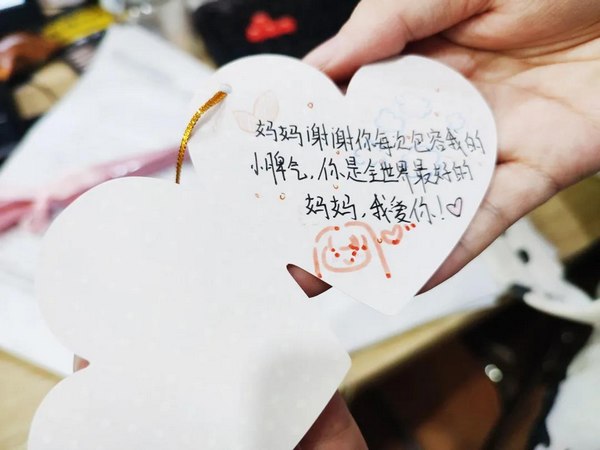 妈妈谢谢你每次包容我的
小脾气，你是全世界最好的
妈妈，我爱你！♡